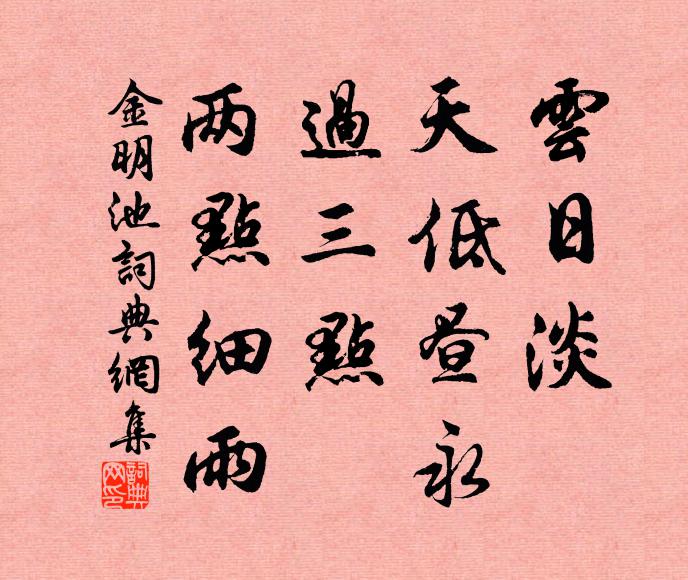 雲日淡
天低昼永
過三點
两點细雨
金明池詞典網集
詞典
网印